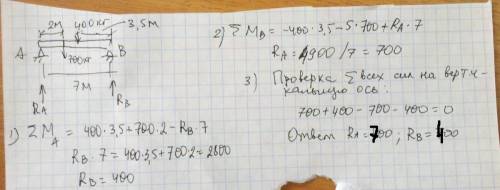 2м 400кг 3,5м
A B
700кг
7м
R_A R_B
1) ΣM_A = 400·3,5+700·2-R_B·7
R_B·7=400·3,5+700·2=2800
R_B=400
2) ΣM_B=-400·3,5-5·700+R_A·7
R_A=4900/7=700
3) Проверка Σ всех сил на верти-
кальную ось:
700+400-700-400=0
Ответ R_A=700; R_B=400